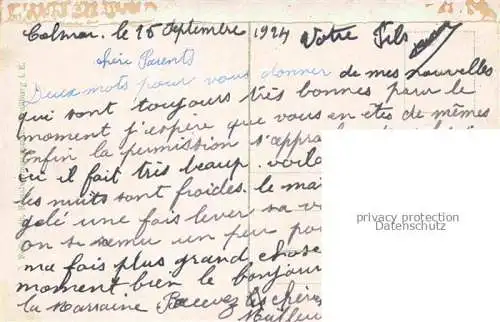 Colmar. le 25 Septembre 1924 Votre Fils
chéri Parents
Deux mots pour vous donner de mes nouvelles
qui sont toujours très bonnes pour le
moment j'espère que vous en etes de mêmes
Enfin la permission s'appro
ici il fait très beau. voila
les nuits sont froides. le ma
gelé une fois lever sa v
on se remu un peu po
ma fois plus grand chose
moment bien le bonjour
la Marraine Recevez chers
Meilleu
privacy protection
Datenschutz